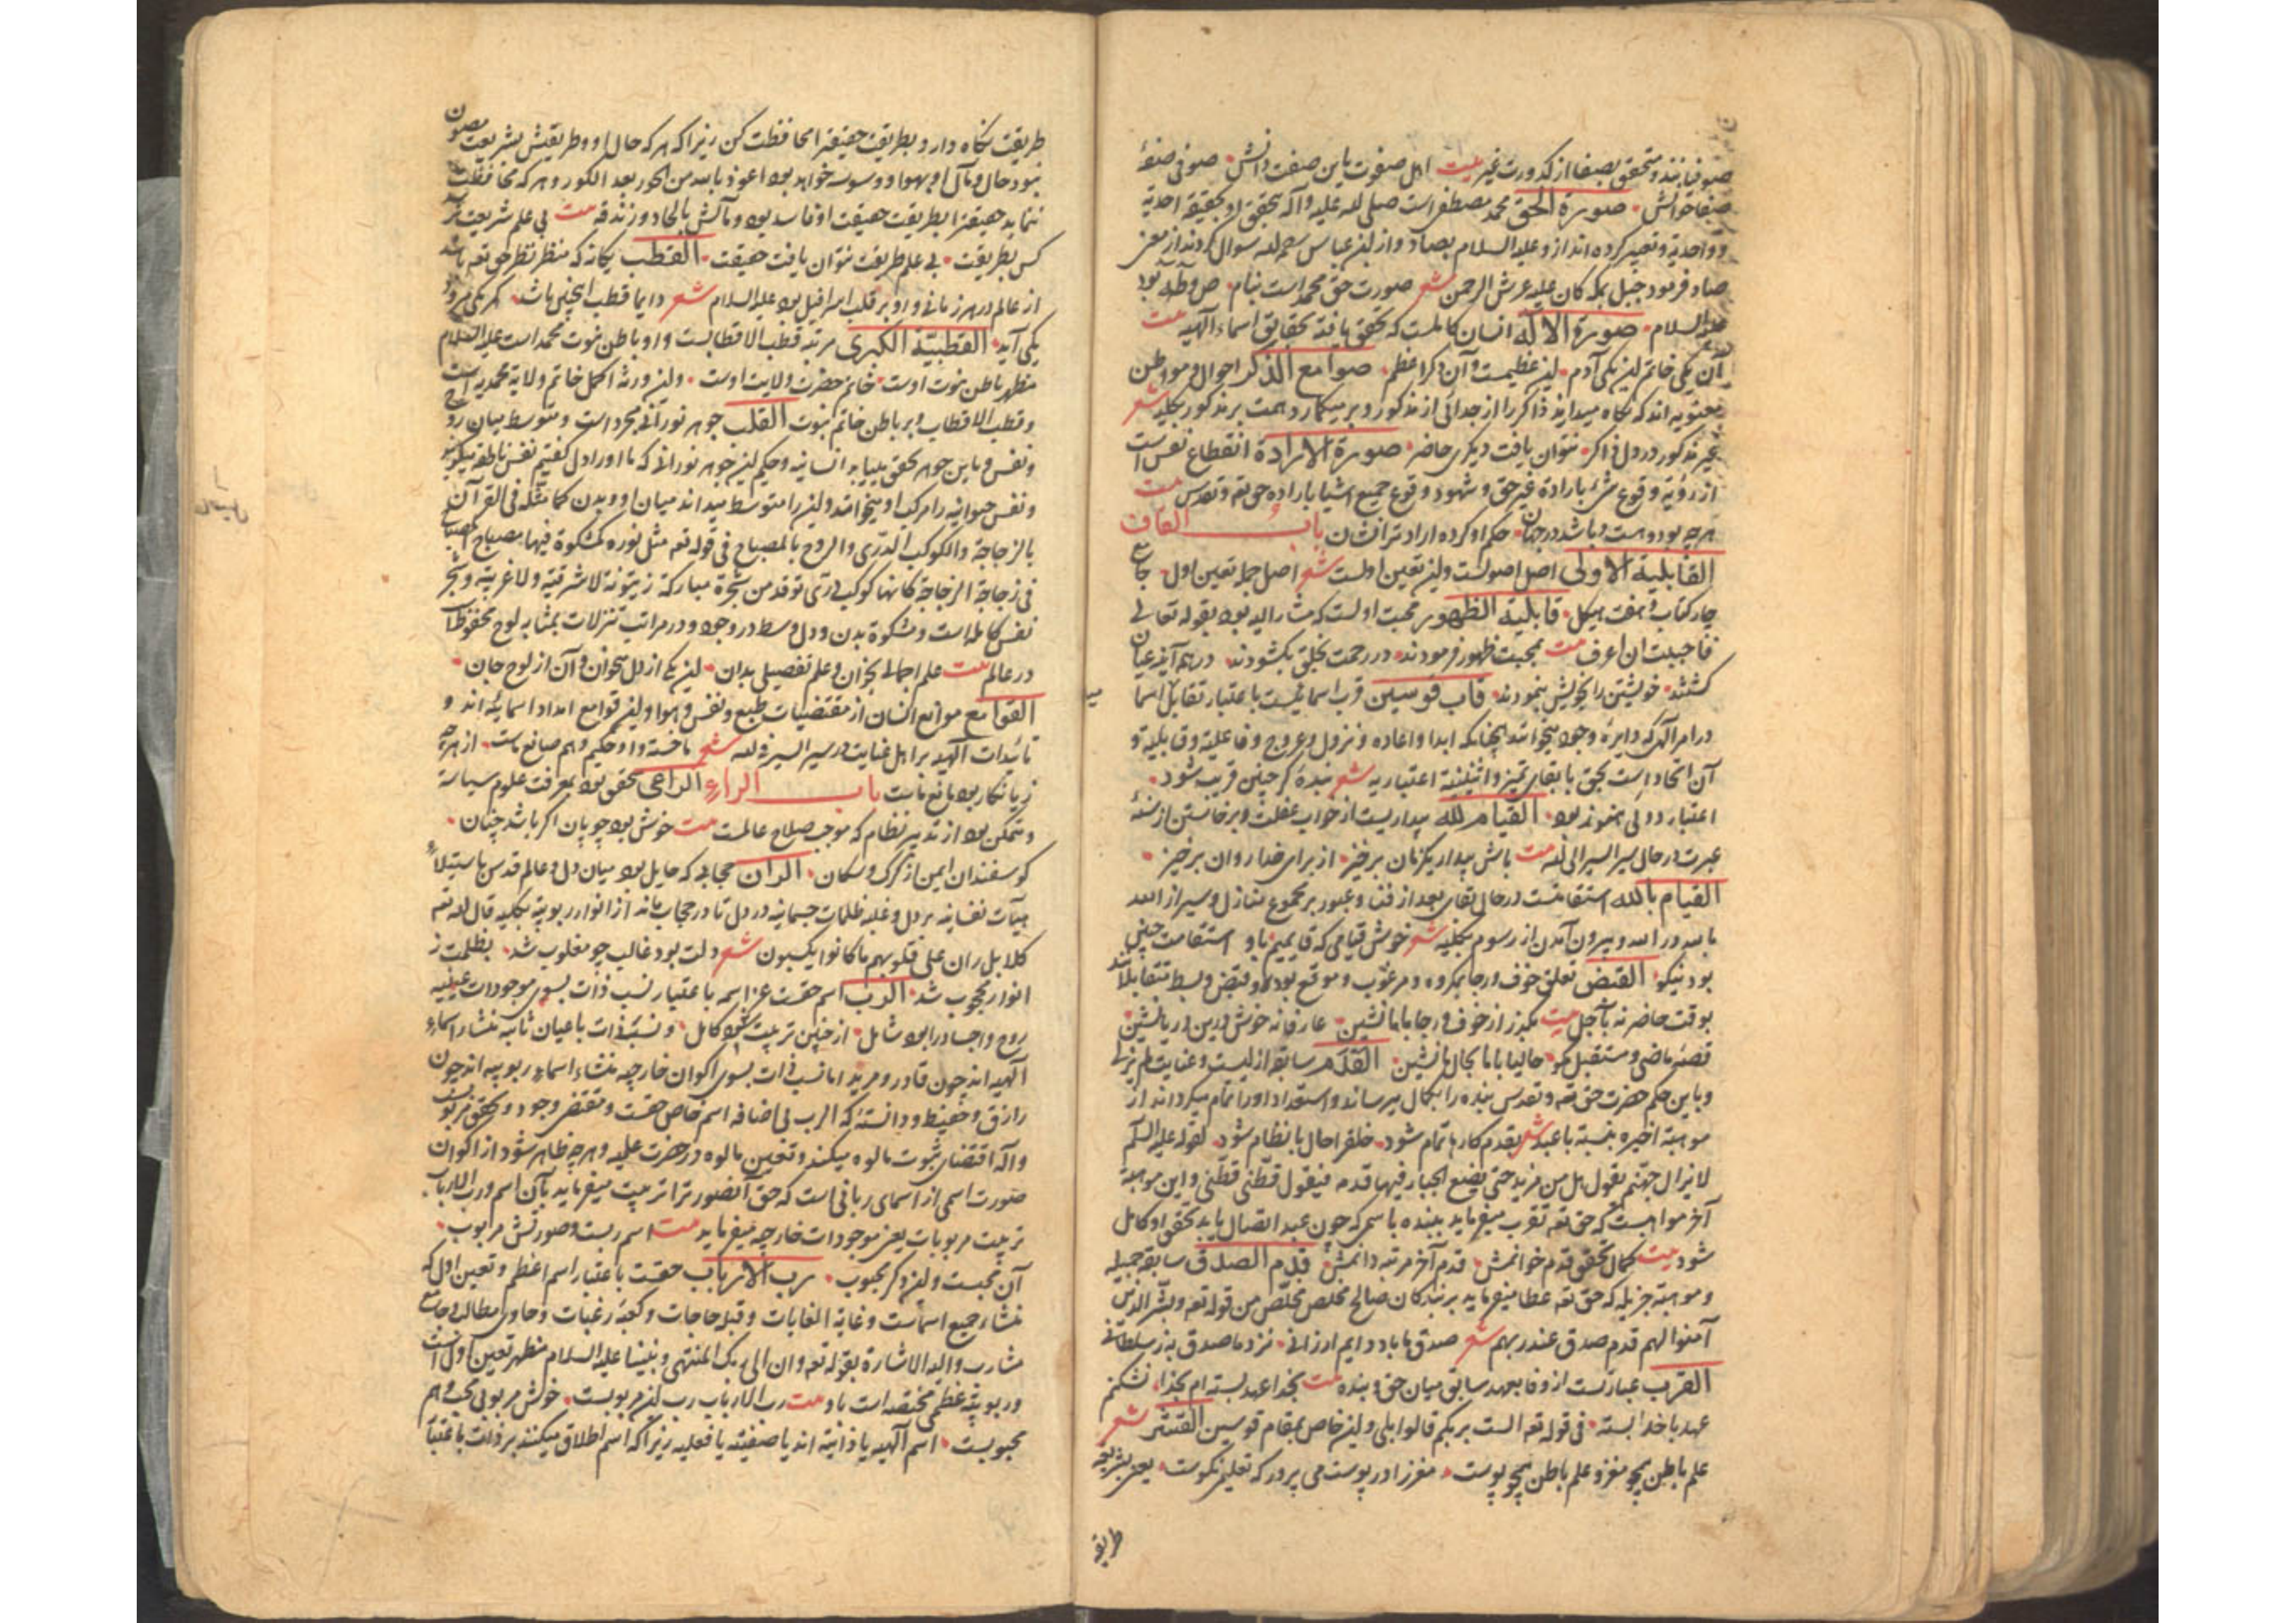 صوفیانند و متحقق بصفا از کدورت غیر بیت اهل صفوت باین صفت دانش صوفی صفهٔ
صفا خوانش صورة الحق محمد مصطفی است صلی الله علیه و آله تحقق او بحقیقة احدیة
و واحدیة و تعبیر کرده اند از و علیه السلام بصاد و از ابن عباس رحمه الله سوال کردند از معنی
صاد فرمود جبل بمکه کان علیه عرش الرحمن شعر صورت حق محمد است بنام ص و طه بود
علیه السلام صورة الاله انسان کاملست که تحقق یافته بحقایق اسماء الهیه بیت
آن یکی خاتم این یکی آدم این عظیمست و آن دگر اعظم صوامع الذکر احوال و مواطن
معنویه اند که نگاه میدارند ذاکر را از جدائی از مذکور و بر میگمارد همت بر مذکور بکلیه شعر
غیر مذکور در دل ذاکر نتوان یافت دیگری حاضر صورة الارادة انقطاع نفس است
از رؤیة وقوع شیٔ بارادة غیر حق و شهود وقوع جمیع اشیا بارادهٔ حق تعه و تقدس بیت
هرچه بود و هست و باشد در جهان حکم او کرده ارادت را نشان باب القاف
القابلیة الاولی اصل اصولست و این تعین اولست شعر اصل جمله تعین اول جامع
چار کتاب و هفت هیکل قابلیة الظهور محبت اولست که مشار الیه بود بقوله تعالی
فاحببت ان اعرف بیت بمحبت ظهور فرمودند در رحمت بخلق بگشودند در همه آینه عیان
گشتند خویشتن را بخویش بنمودند قاب قوسین قرب اسمائیست باعتبار تقابل اسما
در امر الهی که دایرهٔ وجود میخوانند همچنانکه ابدا و اعاده و نزول و عروج و فاعلیة و قابلیة و
آن اتحاد است بحق با بقای تمیز و اثنینیة اعتباریه شعر بندهٔ گر چنین قریب شود
اعتبار دوئی نمود بود القیام لله بیداریست از خواب غفلت و برخاستن از سنهٔ
عبرت در حال سیر السیر الی الله بیت باش بیدار یک زمان برخیز از برای خدا روان برخیز
القیام بالله استقامتست در حال بقای بعد از فنا و عبور بر مجموع منازل و سیر از الله
بالله در الله و بیرون آمدن از رسوم بکلیه شعر خوش قیامی که قایمیم باو استقامت چنین
بود نیکو القبض تعلق خوف و رجا بمکروه و مرغوب و موقع بود و قبض و بسط متقابلانند
بوقت حاضر نه بآجل بیت بگذر از خوف و رجا با ما نشین عارفانه خوش درین دریا نشین
قصهٔ ماضی و مستقبل مگو حالیا با ما بحال ما نشین القدم سابقهٔ ازلیست و عنایت لم یزلی
و باین حکم حضرت حق تعه و تقدس بنده را بکمال میرساند و استعداد او را تمام میگرداند از
موهبة اخیره بنسبة با عبد شعر بقدم کارها تمام شود خلق را حال با نظام شود لقوله علیه السلم
لا یزال جهنم یقول هل من مزید حتی یضع الجبار فیها قدمه فیقول قطنی قطنی و این موهبة
آخر مواهبست که حق تعه تقرب میفرماید ببنده باسمی که چون عبد اتصال یابد تحقق او کامل
شود بیت کمال تحقق قدم خوانمش قدم آخر مرتبه دانمش قدم الصدق سابقهٔ جمیله
و موهبة جزیله که حق تعه عطا میفرماید بر بندگان صالح مخلص مخلّص من قوله تعه و بشر الذین
آمنوا ان لهم قدم صدق عند ربهم شعر صدق ما باد دایم ارزانی نزد ما صدق به ز سلطانی
القرب عبارتست از وفا بعهد سابق میان حق و بنده بیت بخدا عهد بسته ام بخدا نشکنم
عهد با خدا بسته فی قوله تعه الست بربکم قالوا بلی و این خاص بمقام قوسین القشر شعر
علم باطن همچو مغز و علم باطن همچو پوست مغز را در پوست می پرورد که تعلیمی نکوست یعنی بشریعة
طریقه
طریقت نگاه دار و بطریقت حقیقة را محافظت کن زیرا که هر که حال او و طریقتش بشریعت مصون
نبود حال و مآل او بهوا و وسوسه خواهد بود اعوذ بالله من الحور بعد الکور و هر که محافظت
ننماید حقیقة را بطریقت حقیقت او فاسد بود و مآلش بالحاد و زندقه بیت بی علم شریعت نرسد
کس بطریقت بی علم طریقت نتوان یافت حقیقت القطب یگانهٔ که منظر نظر حق تعه باشد
از عالم در هر زمانی و او بر قلب اسرافیل بود علیه السلام شعر دایما قطب اینچنین باشد گر یکی میرود
یکی آید القطبیة الکبری مرتبهٔ قطب الاقطابست و او باطن نبوت محمد است علیه السلام
مظهر باطن نبوت اوست خاتم حضرت ولایت اوست و این ورثهٔ اکمل خاتم ولایة محمدیه است
و قطب الاقطاب بر باطن خاتم نبوت القلب جوهر نورانی مجرد است و متوسط میان روح
و نفس و باین جوهر تحقق مییابد انسانیه و حکیم این جوهر نورانی که ما او را دل گفتیم نفس ناطقه میگوید
و نفس حیوانیه را مرکب او میخوانند و این را متوسط میداند میان او و بدن کما مثّله فی القرآن
بالزجاجة و الکوکب الدرّی و الروح بالمصباح فی قوله تعه مثل نوره کمشکوة فیها مصباح المصباح
فی زجاجة الزجاجة کانها کوکب دری توقد من شجرة مبارکة زیتونة لا شرقیة و لا غربیة و شجر
نفس کامله است و مشکوة بدن و دل وسط در وجود و در مراتب تنزلات بمثابه لوح محفوظ است
در عالم بیت علم اجمالی بخوان و علم تفصیلی بدان این یکی از دل بخوان و آن از لوح جان
القوامع موانع انسان از مقتضیات طبع و نفس و هوا و این قوامع امداد اسمائیه اند و
تائیدات الهیه بر اهل عنایت در سیر السیر فی الله شعر ما خسته و او حکیم و هم صانع ماست از هرچه
زیانکار بود مانع ماست باب الراء الراعی تحقق بود بمعرفت علوم سیاسة
و متمکن بود از تدبیر نظام که موجب صلاح عالمست بیت خوش بود چوپان اگر باشد چنان
گوسفندان ایمن از گرگ و سگان الران حجابی که حایل بود میان دل و عالم قدس باستیلاء
هیآت نفسانیه بر دل و غلبه ظلمات جسمانیه در دل تا در حجاب ماند از انوار ربوبیة بکلیه قال الله تعه
کلا بل ران علی قلوبهم ما کانوا یکسبون شعر دلت بود غالب چو مغلوب شد بظلمت ز
انوار محجوب شد الرب اسم حقست عز اسمه باعتبار نسب ذات بسوی موجودات عینیه
روح و اجساد را بود شامل از چنین تربیت شود کامل و نسب ذات باعیان ثابته منشاء اسماء
الهیه اند چون قادر و مرید اما نسب ذات بسوی اکوان خارجیه منشاء اسماء ربوبیه اند چون
رازق و حفیظ و دانستهٔ که الرب بی اضافه اسم خاص حقست و مقتضی وجود و تحقق مربوب
و اله اقتضای ثبوت مالوه میکند و تعین مالوه در حضرت علمیه و هرچه ظاهر شود از اکوان
صورت اسمی از اسمای ربانی است که حق آنصورت را تربیت میفرماید بآن اسم و رب الارباب
تربیت مربوبات یعنی موجودات خارجیه میفرماید بیت اسم ربست و صورتش مربوب
آن محبست و این دگر محبوب رب الارباب حقست باعتبار اسم اعظم و تعین اول که
منشاء جمیع اسماست و غایة الغایات و قبله حاجات و کعبهٔ رغبات و حاوی مطالب و جامع
مشارب و الیه الاشارة بقوله تعه و ان الی ربک المنتهی و نبینا علیه السلام مظهر تعین اول است
و ربوبیة عظمی مختصه است باو بیت رب الارباب رب این مربوبست خوش مربوبی محب و هم
محبوبست اسم الهیه یا ذاتیه اند یا صفتیه یا فعلیه زیرا که اسم اطلاق میکنند بر ذات باعتبار